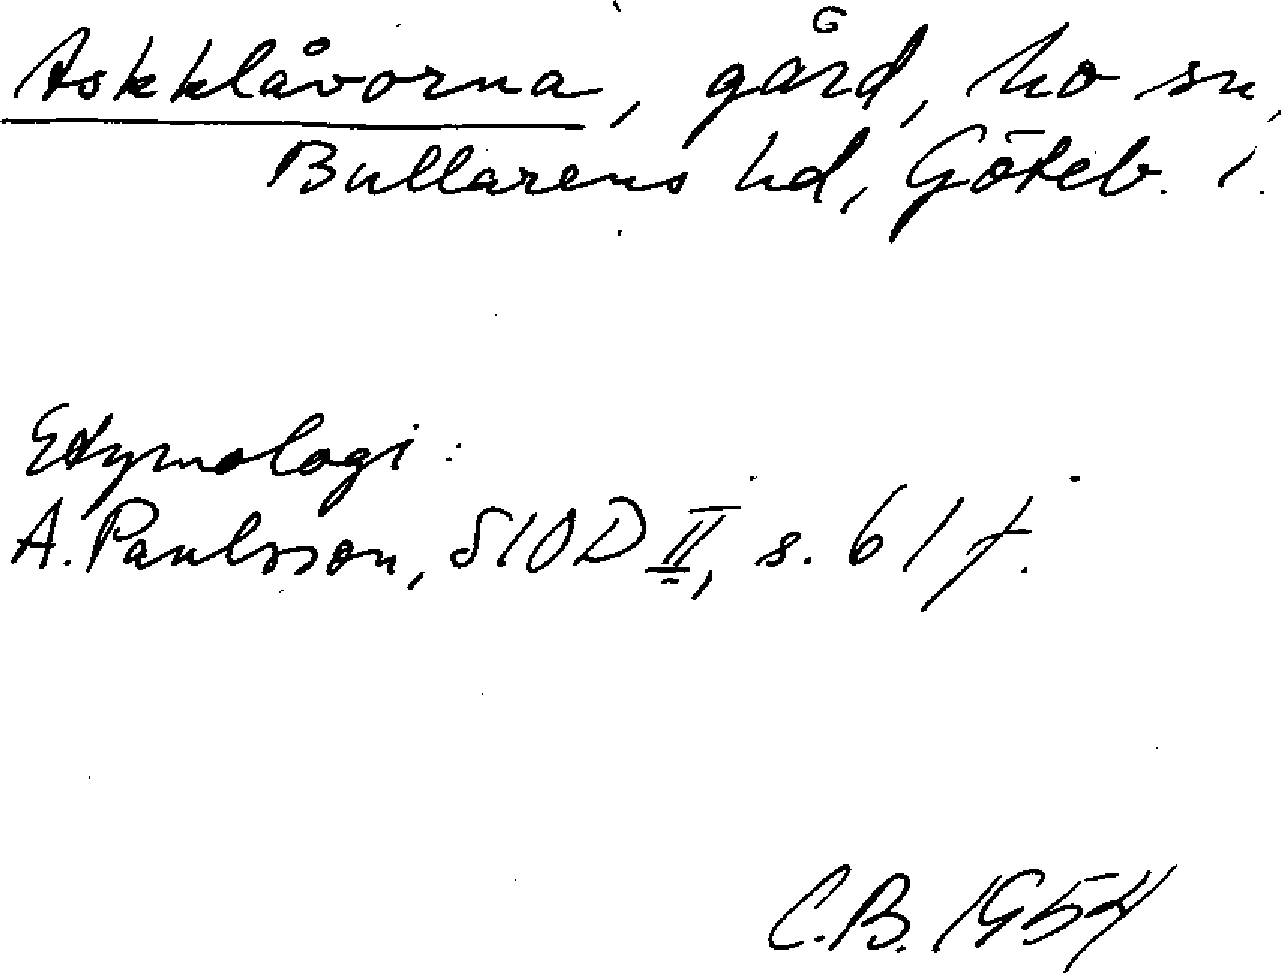 Askklåvorna, gård, Mo sn,
Bullarens hd, Göteb. l.
Etymologi:
A. Paulsson, SIOD II, s. 61 f.
C.B. 1954